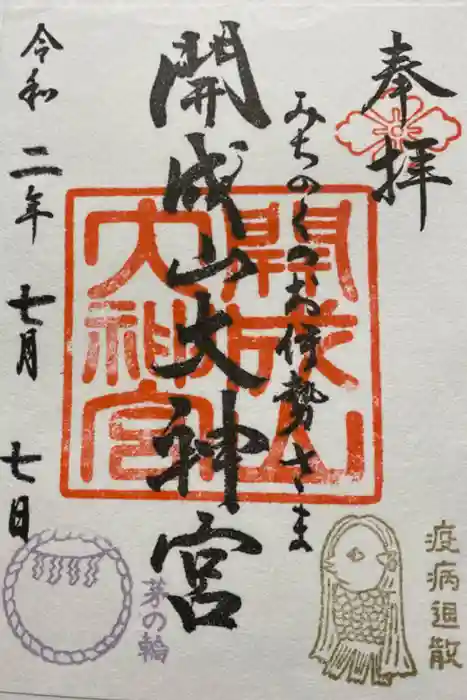 奉拝
みちのくのお伊勢さま
開成山大神宮
令和二年七月七日
開成山
大神宮
疫病退散
茅の輪